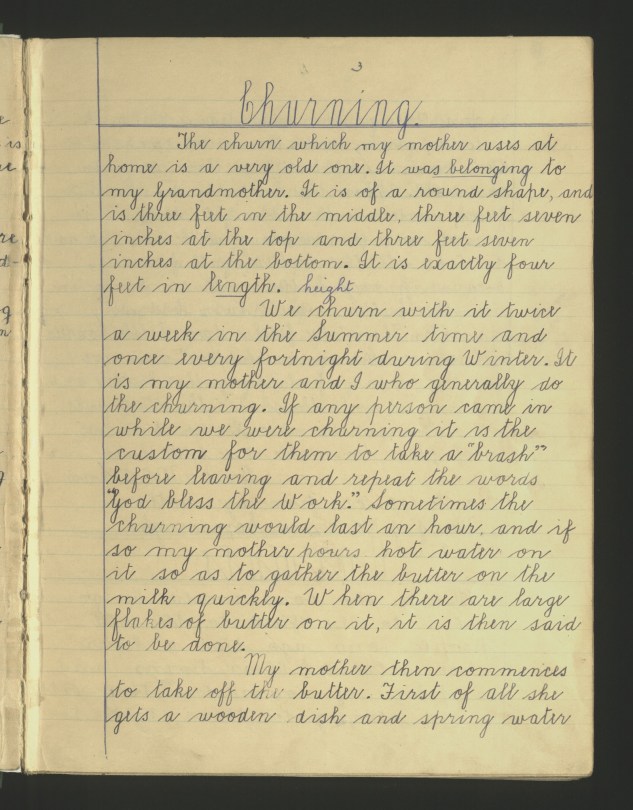 3
Churning.
The churn which my mother uses at
home is a very old one. It was belonging to
my Grandmother. It is of a round shape, and
is three feet in the middle, three feet seven
inches at the top and three feet seven
inches at the bottom. It is exactly four
feet in length. height
We churn with it twice
a week in the Summer time and
once every fortnight during Winter. It
is my mother and I who generally do
the churning. If any person came in
while we were churning it is the
custom for them to take a "brash"
before leaving and repeat the words
"God bless the Work." Sometimes the
churning would last an hour, and if
so my mother pours hot water on
it so as to gather the butter on the
milk quickly. When there are large
flakes of butter on it, it is then said
to be done.
My mother then commences
to take off the butter. First of all she
gets a wooden dish and spring water